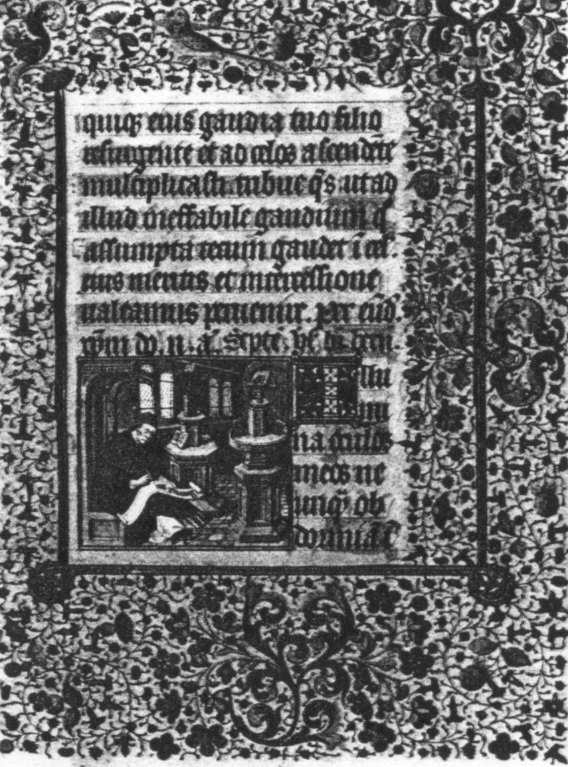 quiq; eius gaudia tuo filio
resurgente et ad celos ascendẽte
multiplicasti. tribue q̃s ut ad
illud ineffabile gaudium q̃
assumpta tecum gaudet
eius meritis et intercessione
ualeamus peruenire. Per eũd
dn̄
Illu
mi
na oculos
meos ne
unq̃ ob
dormiã ĩ